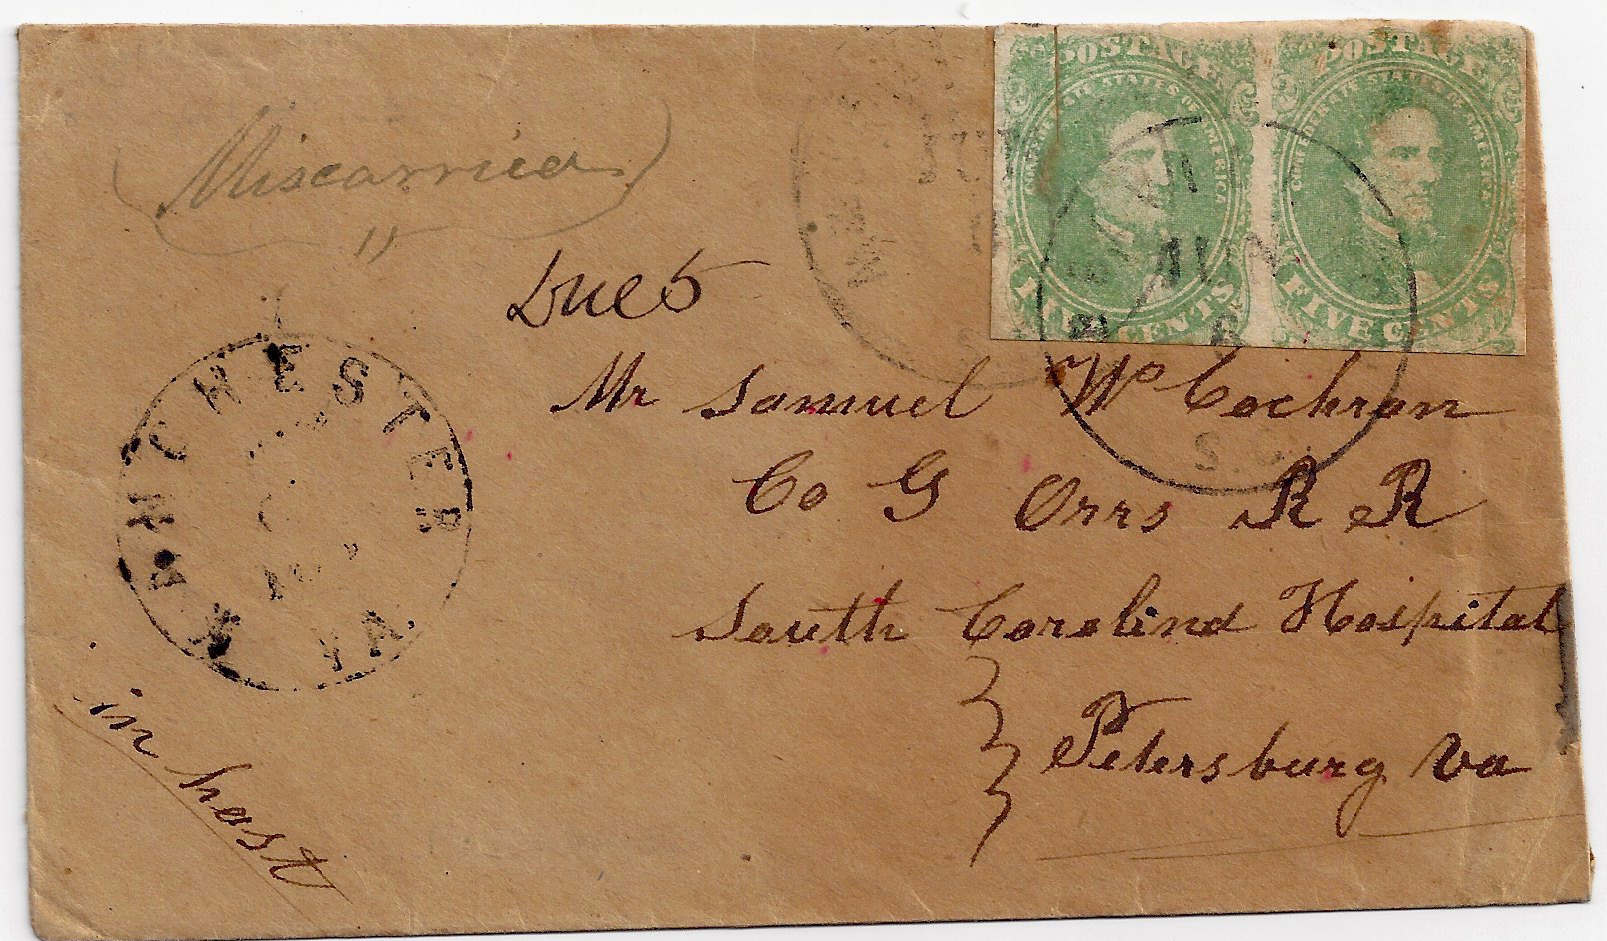 POSTAGE POSTAGE
CONFEDERATE STATES OF AMERICA CONFEDERATE STATES OF AMERICA
FIVE CENTS FIVE CENTS
(Miscarried)
Due 5
JUN
S.C.
WINCHESTER VA
Mr Samuel W Cochran
Co G Orrs R R
South Carolina Hospital
Petersburg Va
in hast